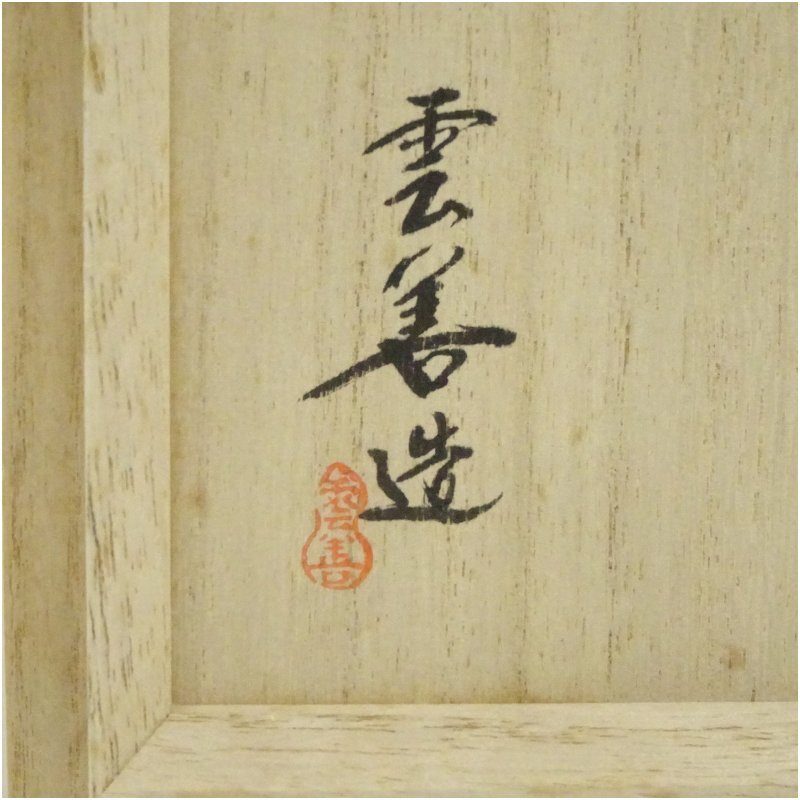 雲善造
雲善